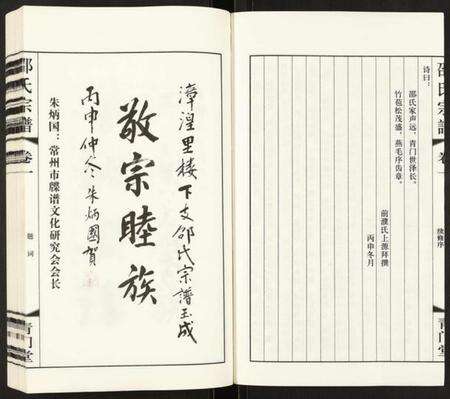 邵氏宗譜
卷一
续修序
青门堂
诗曰：
邵氏家声远，青门世泽长。
竹苞松茂盛，燕毛序齿章。
前濮氏上源拜撰
丙申冬月
漳湟里楼下支邵氏宗谱玉成
敬宗睦族
丙申仲冬朱炳國賀
朱炳国：常州市牒谱文化研究会会长
邵氏宗譜
卷一
题词
青门堂